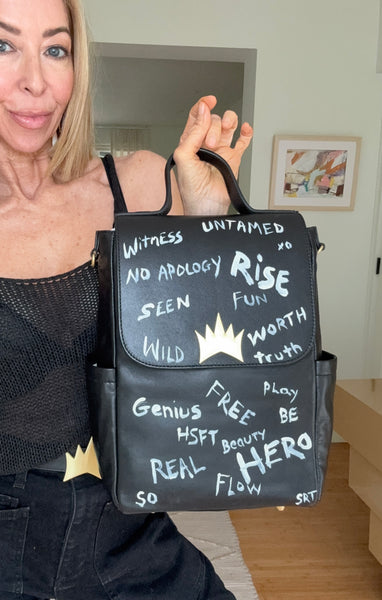 WITNESS UNTAMED
xo
NO APOLOGY RISE
SEEN FUN
WILD WORTH
truth
Genius FREE PLay
HSFT Beauty BE
REAL HERO
SO FLOW SRT